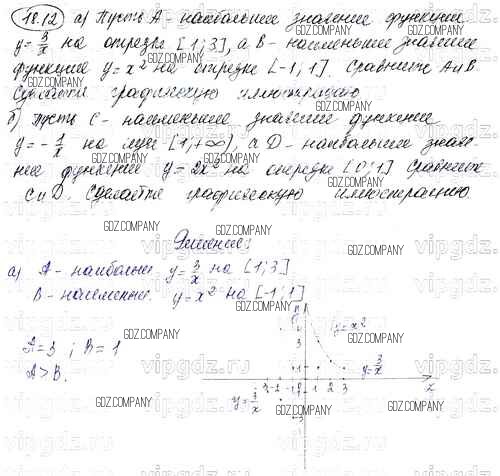 18.12 а) Пусть А - наибольшее значение функции
y = 3/x на отрезке [1;3], а В - наименьшее значение
функции y = x² на отрезке [-1;1]. Сравните А и В.
Сделайте графическую иллюстрацию
б) Пусть С - наименьшее значение функции
y = -1/x на луче [1;+∞), а D - наибольшее значе-
ние функции y = 2x² на отрезке [0;1]. Сравните
С и D. Сделайте графическую иллюстрацию
Решение:
а) А - наибольш. y = 3/x на [1;3]
В - наименьш. y = x² на [-1;1]
A = 3 ; B = 1
A > B.
y = x²
y = 3/x
y = 3/x
x
-3 -2 -1 0 1 2 3
GDZ.COMPANY
vipgdz.ru